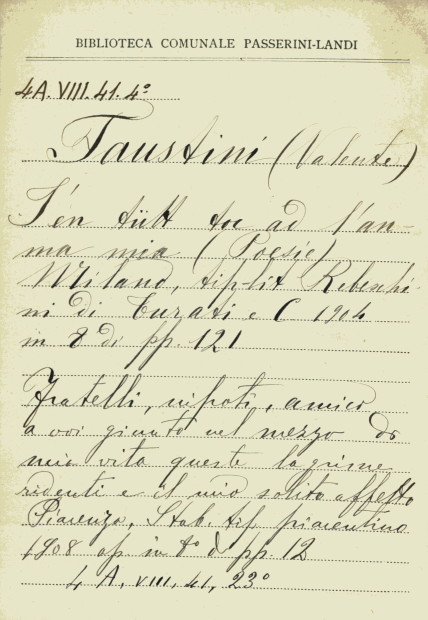 BIBLIOTECA COMUNALE PASSERINI-LANDI
4A. VIII. 41. 4º
Faustini (Valente)
S'én tütt toc ad l'an-
ma mia (Poesie)
Milano, tip-lit Rebeschi-
ni di Turati e C 1904
in 8 di pp. 121
Fratelli, nipoti, amico
a voi giunto nel mezzo do
mia vita queste lagrime
ridenti e il mio solito affetto
Piacenza, Stab. tip. piacentino
1908 op in 8º d pp. 12
4 A, VIII, 41, 23º